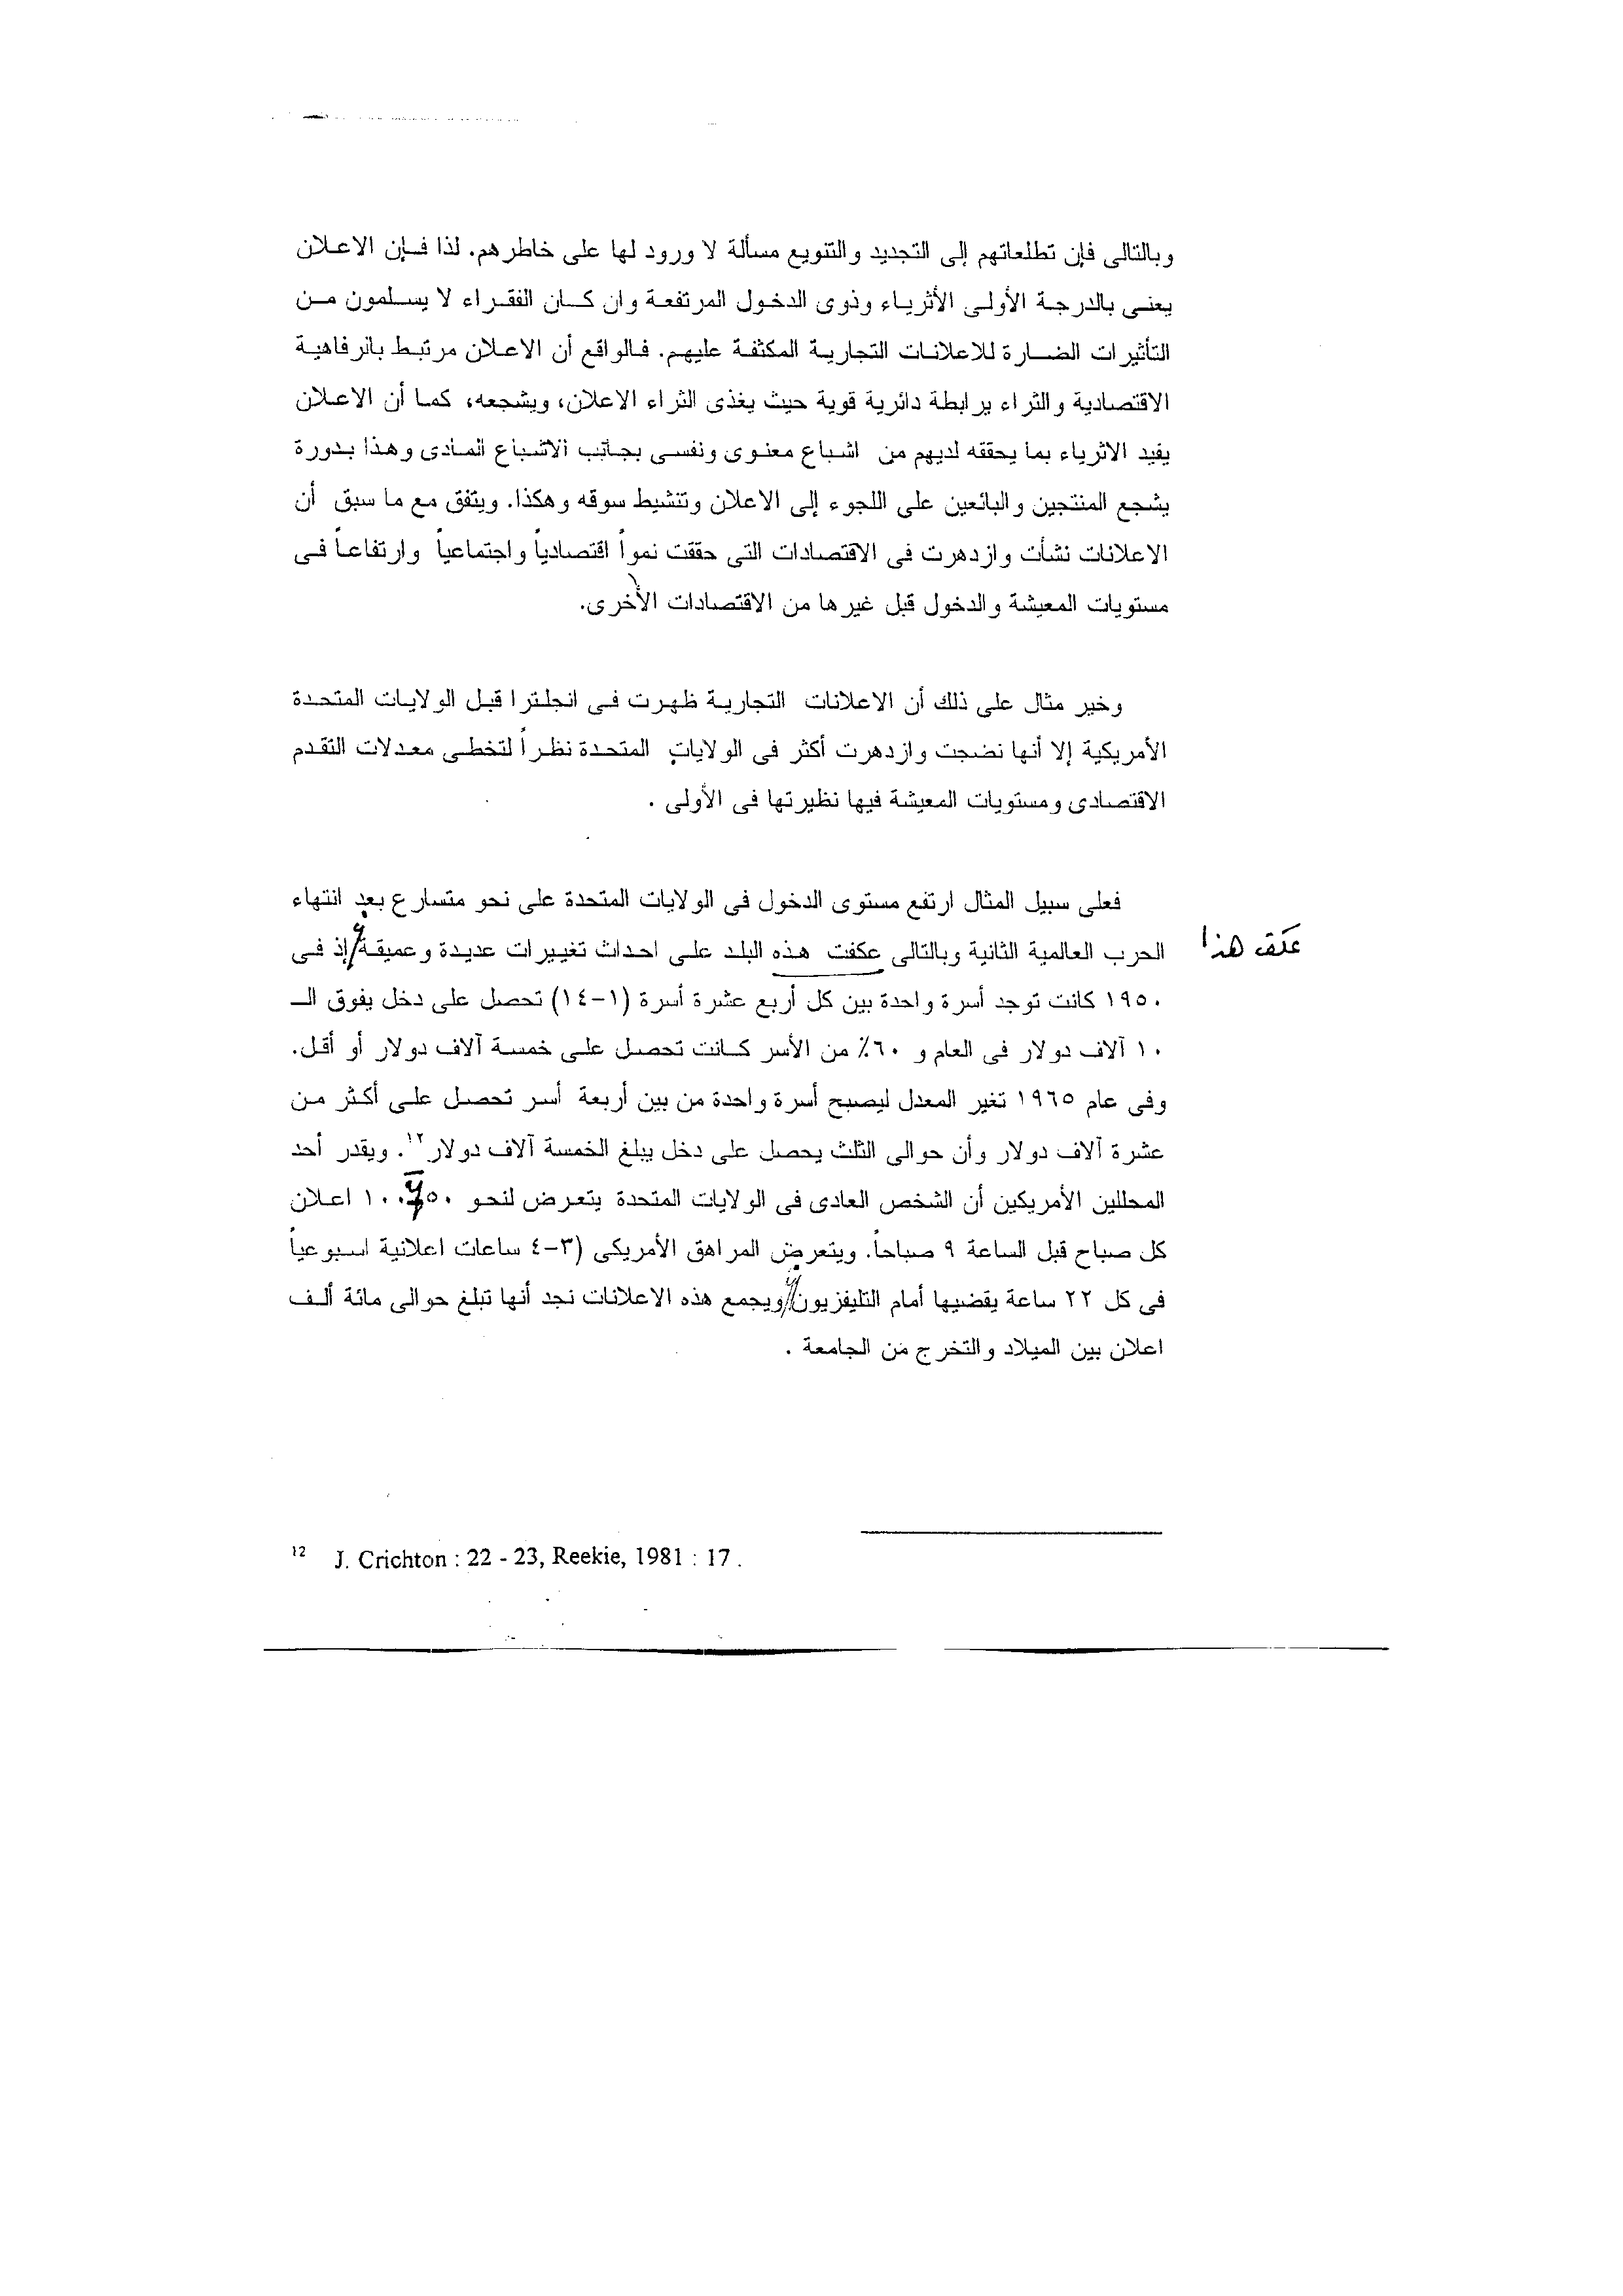 وبالتالى فإن تطلعاتهم إلى التجديد والتنويع مسألة لا ورود لها على خاطرهم. لذا فإن الاعلان
يعنى بالدرجة الأولى الأثرياء وذوى الدخول المرتفعة وان كان الفقراء لا يسلمون من
التأثيرات الضارة للاعلانات التجارية المكثفة عليهم. فالواقع أن الاعلان مرتبط بالرفاهية
الاقتصادية والثراء برابطة دائرية قوية حيث يغذى الثراء الاعلان، ويشجعه، كما أن الاعلان
يفيد الاثرياء بما يحققه لديهم من اشباع معنوى ونفسى بجانب الاشباع المادى وهذا بدورة
يشجع المنتجين والبائعين على اللجوء إلى الاعلان وتنشيط سوقه وهكذا. ويتفق مع ما سبق أن
الاعلانات نشأت وازدهرت فى الاقتصادات التى حققت نمواً اقتصادياً واجتماعياً وارتفاعاً فى
مستويات المعيشة والدخول قبل غيرها من الاقتصادات الأخرى.
وخير مثال على ذلك أن الاعلانات التجارية ظهرت فى انجلترا قبل الولايات المتحدة
الأمريكية إلا أنها نضجت وازدهرت أكثر فى الولايات المتحدة نظراً لتخطى معدلات التقدم
الاقتصادى ومستويات المعيشة فيها نظيرتها فى الأولى .
فعلى سبيل المثال ارتفع مستوى الدخول فى الولايات المتحدة على نحو متسارع بعد انتهاء
الحرب العالمية الثانية وبالتالى عكفت هذه البلد على احداث تغييرات عديدة وعميقة إذ فى
عكف هذا
١٩٥٠ كانت توجد أسرة واحدة بين كل أربع عشرة أسرة (١-١٤) تحصل على دخل يفوق الـ
١٠ آلاف دولار فى العام و ٦٠٪ من الأسر كانت تحصل على خمسة آلاف دولار أو أقل.
وفى عام ١٩٦٥ تغير المعدل ليصبح أسرة واحدة من بين أربعة أسر تحصل على أكثر من
عشرة آلاف دولار وأن حوالى الثلث يحصل على دخل يبلغ الخمسة آلاف دولار١٢. ويقدر أحد
المحللين الأمريكين أن الشخص العادى فى الولايات المتحدة يتعرض لنحو ٥٠ ١٠٠ اعلان
كل صباح قبل الساعة ٩ صباحاً. ويتعرض المراهق الأمريكى (٣-٤ ساعات اعلانية اسبوعياً
فى كل ٢٢ ساعة يقضيها أمام التليفزيون ويجمع هذه الاعلانات نجد أنها تبلغ حوالى مائة ألف
اعلان بين الميلاد والتخرج من الجامعة .
12 J. Crichton : 22 - 23, Reekie, 1981 : 17 .